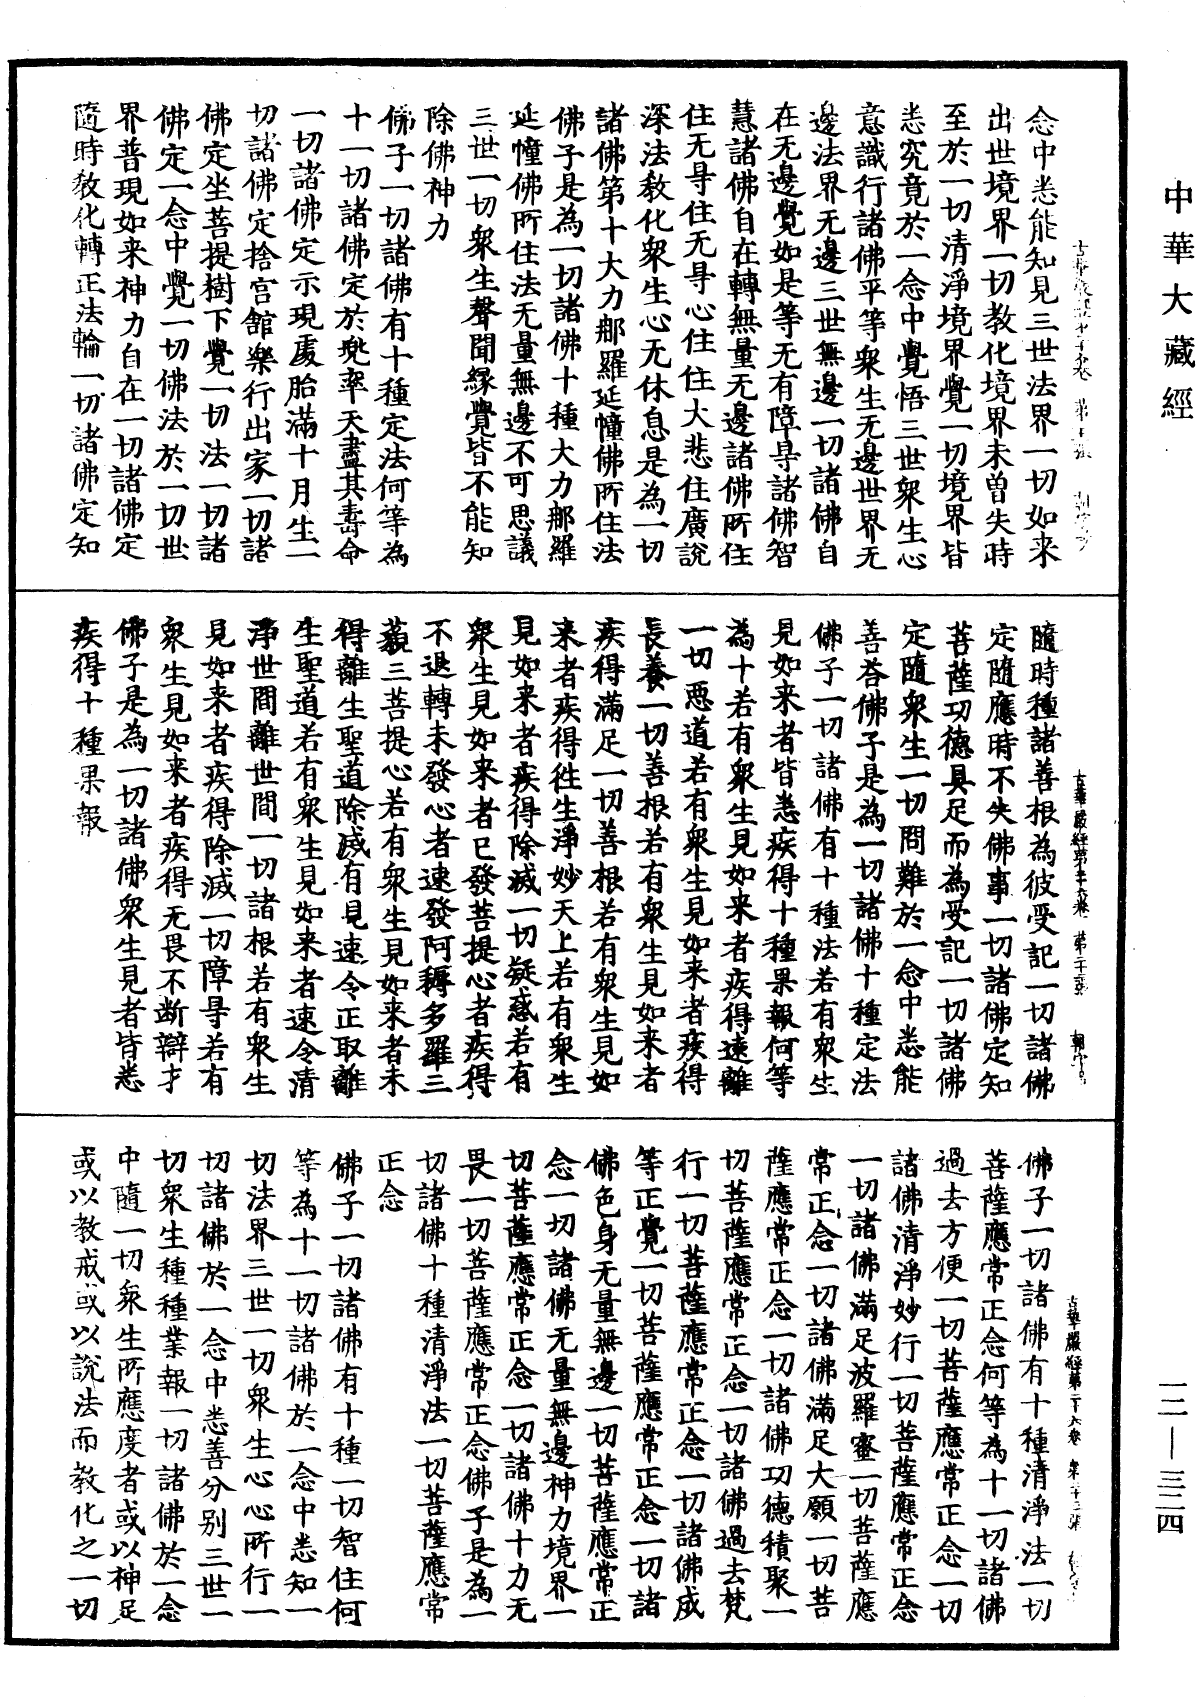 中華大藏經
念中悉能知見三世法界一切如来
出世境界一切教化境界未曽失時
至於一切清淨境界覺一切境界皆
悉究竟於一念中覺悟三世衆生心
意識行諸佛平等衆生无邊世界无
邊法界无邊三世無邊一切諸佛自
在无邊覺如是等无有障㝵諸佛智
慧諸佛自在轉無量无邊諸佛所住
住无㝵住无㝵心住住大悲住廣說
深法教化衆生心无休息是為一切
諸佛第十大力那羅延幢佛所住法
佛子是為一切諸佛十種大力那羅
延幢佛所住法无量無邊不可思議
三世一切衆生聲聞緣覺皆不能知
除佛神力
佛子一切諸佛有十種定法何等為
十一切諸佛定於兜率天盡其壽命
一切諸佛定示現處胎滿十月生一
切諸佛定捨宫館樂行出家一切諸
佛定坐菩提樹下覺一切法一切諸
佛定一念中覺一切佛法於一切世
界普現如来神力自在一切諸佛定
隨時教化轉正法輪一切諸佛定知
隨時種諸善根為彼受記一切諸佛
定隨應時不失佛事一切諸佛定知
菩薩功德具足而為受記一切諸佛
定隨衆生一切問難於一念中悉能
善荅佛子是為一切諸佛十種定法
佛子一切諸佛有十種法若有衆生
見如来者皆悉疾得十種果報何等
為十若有衆生見如来者疾得遠離
一切惡道若有衆生見如来者疾得
長養一切善根若有衆生見如来者
疾得滿足一切善根若有衆生見如
来者疾得徃生淨妙天上若有衆生
見如来者疾得除滅一切疑惑若有
衆生見如来者已發菩提心者疾得
不退轉未發心者速發阿耨多羅三
藐三菩提心若有衆生見如来者未
得離生聖道除滅有見速令正取離
生聖道若有衆生見如来者速令清
淨世間離世間一切諸根若有衆生
見如来者疾得除滅一切障㝵若有
衆生見如来者疾得无畏不断辯才
佛子是為一切諸佛衆生見者皆悉
疾得十種果報
佛子一切諸佛有十種清淨法一切
菩薩應常正念何等為十一切諸佛
過去方便一切菩薩應常正念一切
諸佛清淨妙行一切菩薩應常正念
一切諸佛滿足波羅蜜一切菩薩應
常正念一切諸佛滿足大願一切菩
薩應常正念一切諸佛功德積聚一
切菩薩應常正念一切諸佛過去梵
行一切菩薩應常正念一切諸佛成
等正覺一切菩薩應常正念一切諸
佛色身无量無邊一切菩薩應常正
念一切諸佛无量無邊神力境界一
切菩薩應常正念一切諸佛十力无
畏一切菩薩應常正念佛子是為一
切諸佛十種清淨法一切菩薩應常
正念
佛子一切諸佛有十種一切智住何
等為十一切諸佛於一念中悉知一
切法界三世一切衆生心心所行一
切諸佛於一念中悉善分别三世一
切衆生種種業報一切諸佛於一念
中隨一切衆生所應度者或以神足
或以教戒或以說法而教化之一切
一二—三二四